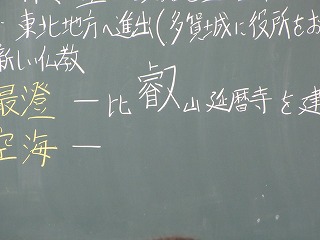 ・東北地方へ進出(多賀城に役所をお
新しい仏教
最澄 ― 比叡山延暦寺を建
空海 ―